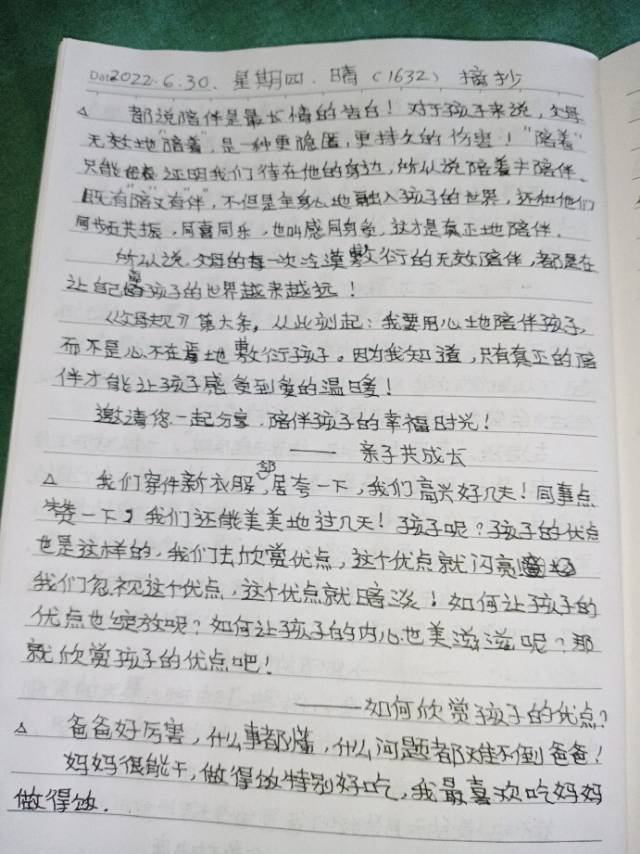 Dat 2022.6.30. 星期四. 晴 (1632) 摘抄
△ 都说陪伴是最长情的告白! 对于孩子来说, 父母
无效地"陪着", 是一种更隐匿, 更持久的伤害! "陪着"
只能 证明我们待在他的身边, 所以说陪着≠陪伴.
既有"陪"又有"伴", 不但是全身心地融入孩子的世界, 还和他们
同步共振, 同喜同乐, 也叫感同身受, 这才是真正地陪伴.
所以说, 父母的每一次冷漠敷衍的无效陪伴, 都是在
让自己离孩子的世界越来越远!
《父母规》第六条, 从此刻起: 我要用心地陪伴孩子,
而不是心不在焉地敷衍孩子。因为我知道, 只有真正的陪
伴才能让孩子感觉到爱的温暖!
邀请您一起分享. 陪伴孩子的幸福时光!
—— 亲子共成长
△ 我们穿件新衣服, 被夸一下, 我们高兴好几天! 同事点
赞一下, 我们还能美美地过几天! 孩子呢? 孩子的优点
也是这样的, 我们去欣赏优点, 这个优点就闪亮
我们忽视这个优点, 这个优点就暗淡! 如何让孩子的
优点也绽放呢? 如何让孩子的内心也美滋滋呢? 那
就欣赏孩子的优点吧!
——如何欣赏孩子的优点?
△ 爸爸好厉害, 什么事都懂, 什么问题都难不倒爸爸!
妈妈很能干, 做得饭特别好吃, 我最喜欢吃妈妈
做得饭.